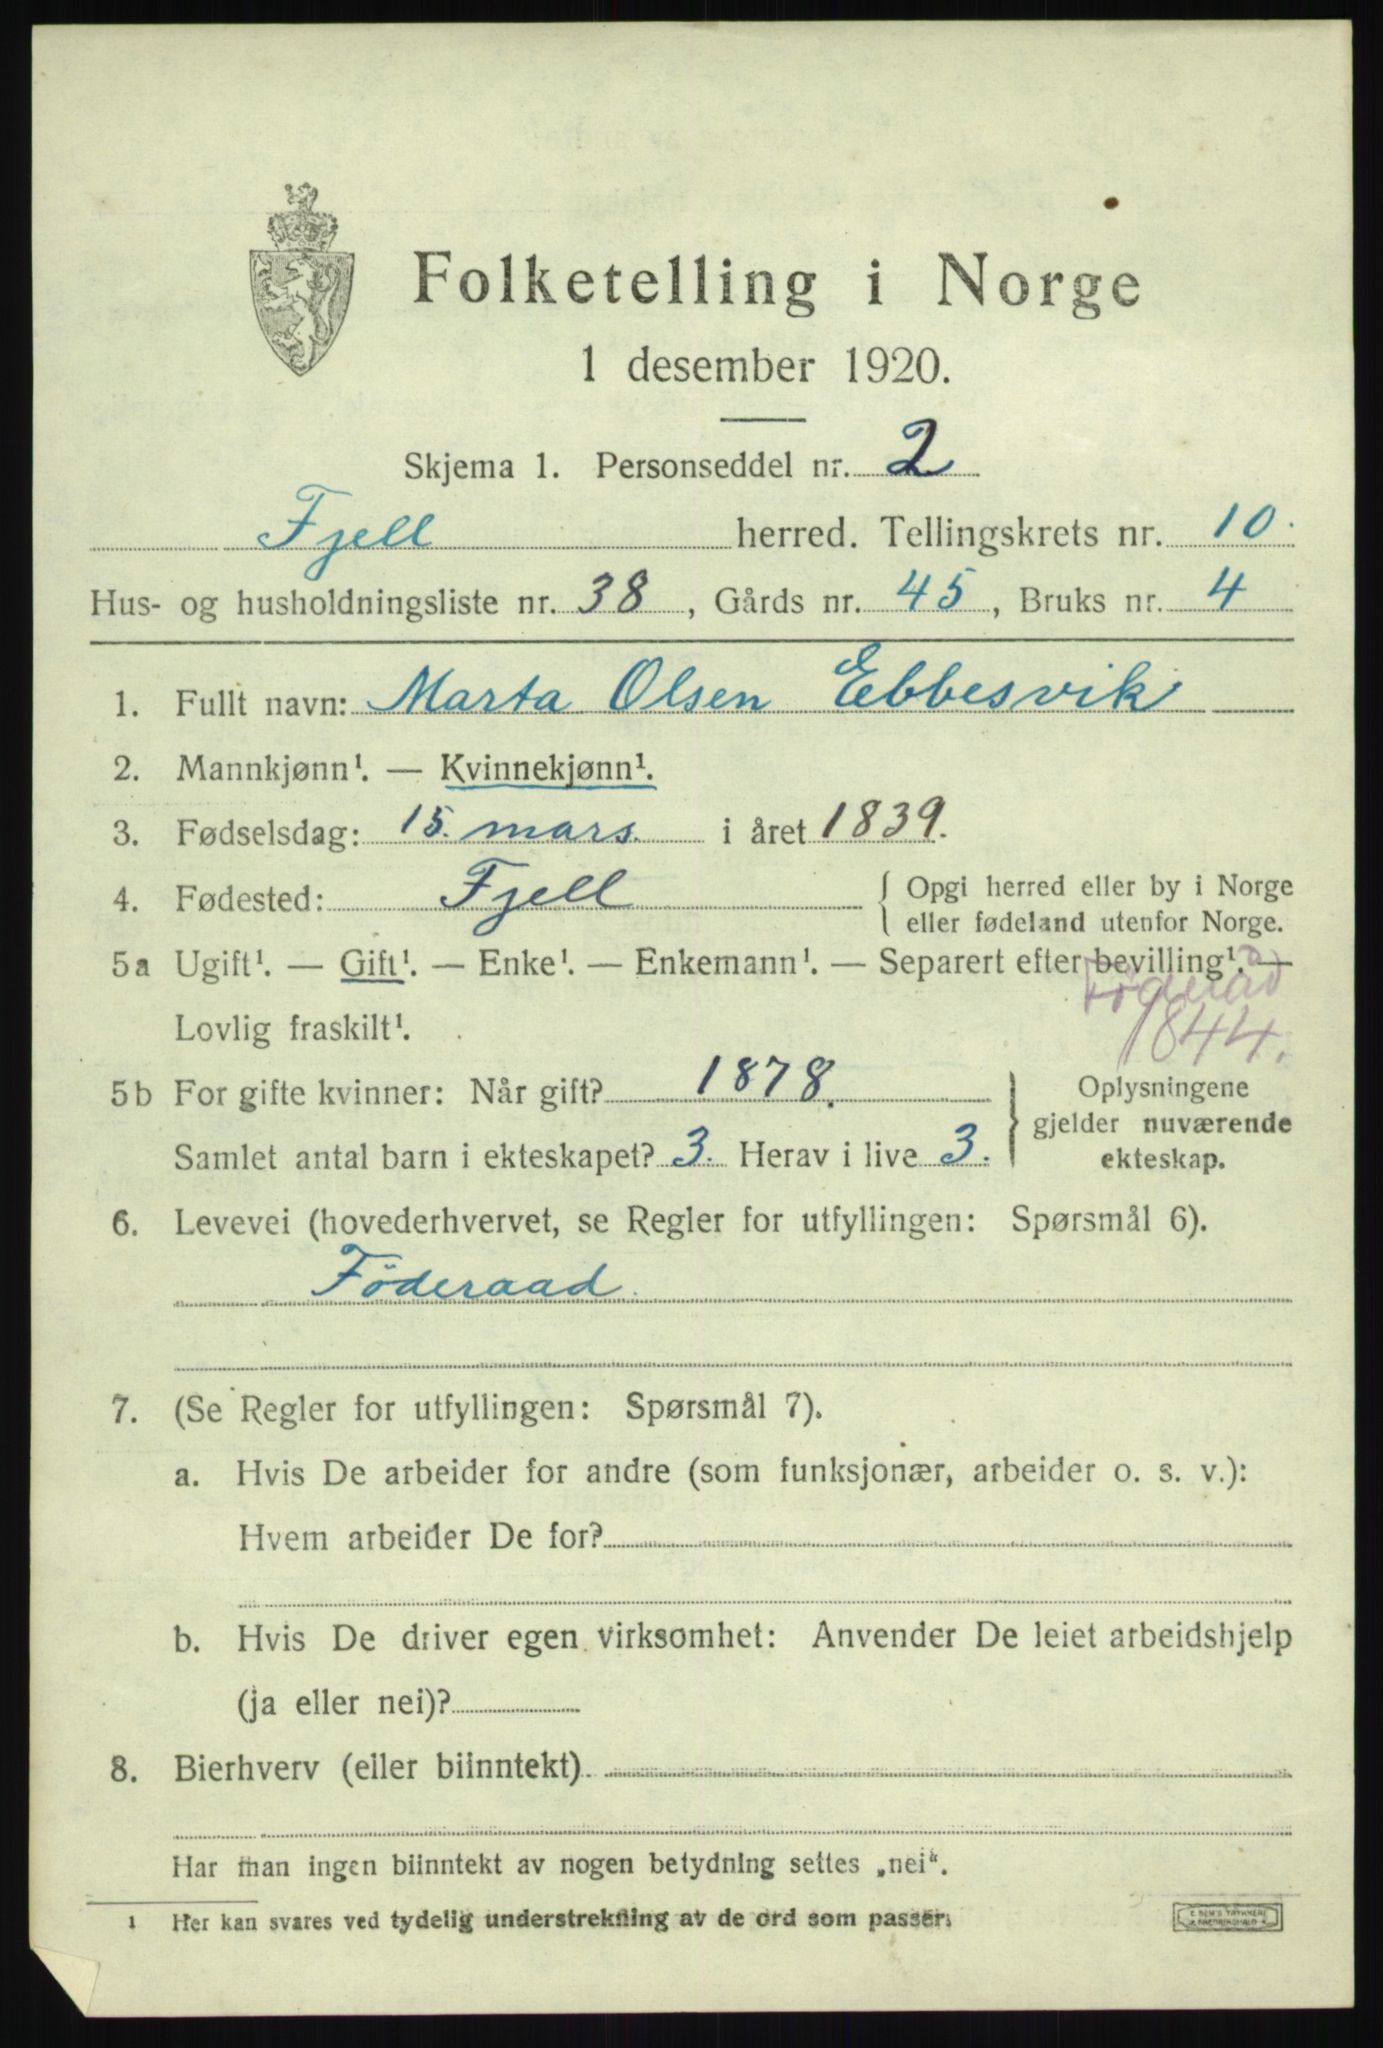 Folketelling i Norge
1 desember 1920.
Skjema 1. Personseddel nr. 2
Fjell herred. Tellingskrets nr. 10.
Hus- og husholdningsliste nr. 38, Gårds nr. 45, Bruks nr. 4
1. Fullt navn: Marta Olsen Ebbesvik
2. Mannkjønn¹. — Kvinnekjønn¹.
3. Fødselsdag: 15. mars. i året 1839.
4. Fødested: Fjell { Opgi herred eller by i Norge
eller fødeland utenfor Norge.
5a Ugift¹. — Gift¹. — Enke¹. — Enkemann¹. — Separert efter bevilling¹. —
Føderåd
Lovlig fraskilt¹.
1844.
5b For gifte kvinner: Når gift? 1878.
Samlet antal barn i ekteskapet? 3. Herav i live 3.
} Oplysningene
gjelder nuværende
ekteskap.
6. Levevei (hovederhvervet, se Regler for utfyllingen: Spørsmål 6).
Föderaad.
7. (Se Regler for utfyllingen: Spørsmål 7).
a. Hvis De arbeider for andre (som funksjonær, arbeider o. s. v.):
Hvem arbeider De for?
b. Hvis De driver egen virksomhet: Anvender De leiet arbeidshjelp
(ja eller nei)?
8. Bierhverv (eller biinntekt)
Har man ingen biinntekt av nogen betydning settes „nei“.
¹ Her kan svares ved tydelig understrekning av de ord som passer.